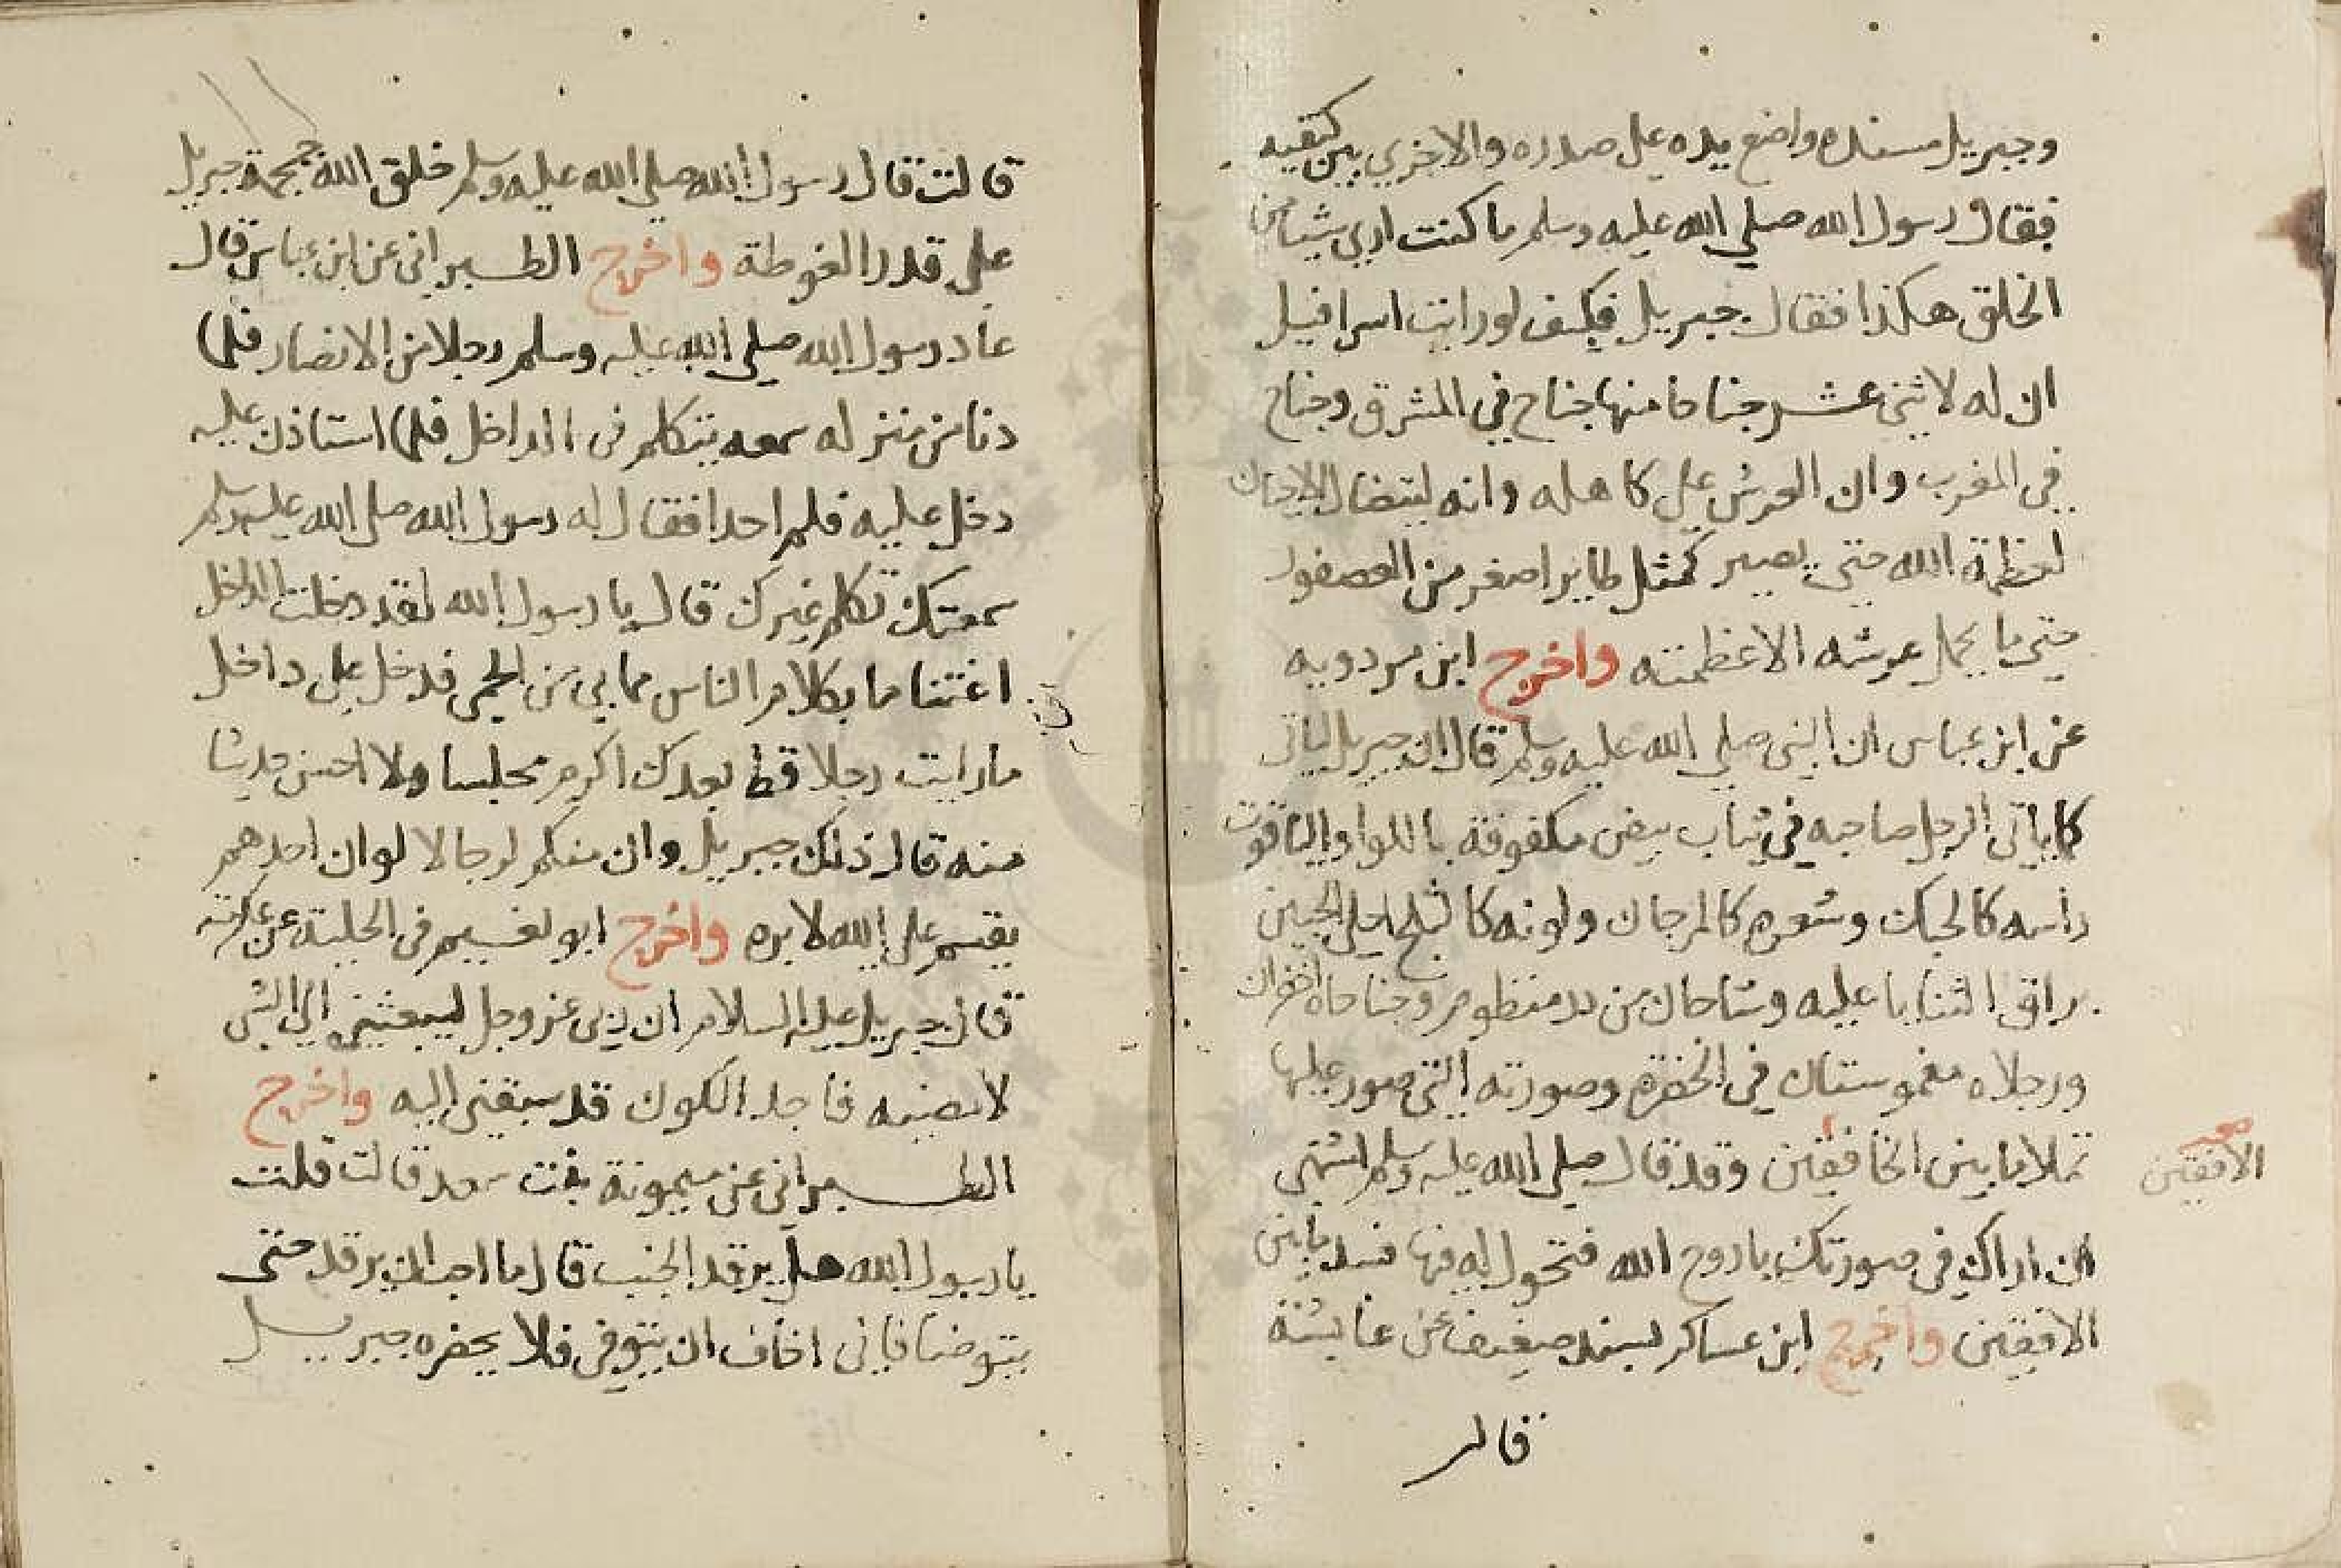 وجبريل مسنده واضع يده على صدره والاخرى بين كتفيه
فقال رسول الله صلى الله عليه وسلم ما كنت ارى شيئا من
الخلق هكذا فقال جبريل فكيف لو رايت اسرافيل
ان له لاثنى عشر جناحا منها جناح في المشرق وجناح
في المغرب وان العرش على كاهله وانه ليتضال الاحيان
لعظمة الله حتى يصير كمثل طاير اصغر من العصفور
حتى ما يحمل عرشه الا عظمته واخرج ابن مردويه
عن ابن عباس ان النبى صلى الله عليه وسلم قال ان جبريل لياتى
كما ياتى الرجل صاحبه في ثياب بيض مكفوفة باللولو والياقوت
راسه كالحبك وشعره كالمرجان ولونه كالثلج اجلى الجبين
براق الثنايا عليه وشاحان من در منظوم وجناحاه اخضران
ورجلاه مغموستان في الخضرة وصورته التى صور عليها
تملا ما بين الخافقين وقد قال صلى الله عليه وسلم اشتهى
الافقين
ان اراك في صورتك يا روح الله فتحول له فيها فسد ما بين
الافقين واخرج ابن عساكر بسند ضعيف عن عايشة
قالت
قالت قال رسول الله صلى الله عليه وسلم خلق الله جمجمة جبريل
على قدر الغوطة واخرج الطبرانى عن ابن عباس قال
عاد رسول الله صلى الله عليه وسلم رجلا من الانصار فلما
دنا من منزله سمعه يتكلم فى الداخل فلما استاذن عليه
دخل عليه فلم احدا فقال له رسول الله صلى الله عليه وسلم
سمعتك تكلم غيرك قال يا رسول الله لقد دخلت الداخل
اغتماما بكلام الناس مما بى من الحمى فدخل على داخل
ما رايت رجلا قط بعدك اكرم مجلسا ولا احسن حديثا
منه قال ذلك جبريل وان منكم لرجالا لو ان احدهم
يقسم على الله لابره واخرج ابو نعيم فى الحلية عن عكرمة
قال جبريل عليه السلام ان ربى عز وجل ليبعثنى الى الشى
لامضيه فاجد الكون قد سبقنى اليه واخرج
الطبرانى عن ميمونة بنت سعد قالت قلت
يا رسول الله هل يرقد الجنب قال ما احب ان يرقد حتى
يتوضا فانى اخاف ان يتوفى فلا يحضره جبريل